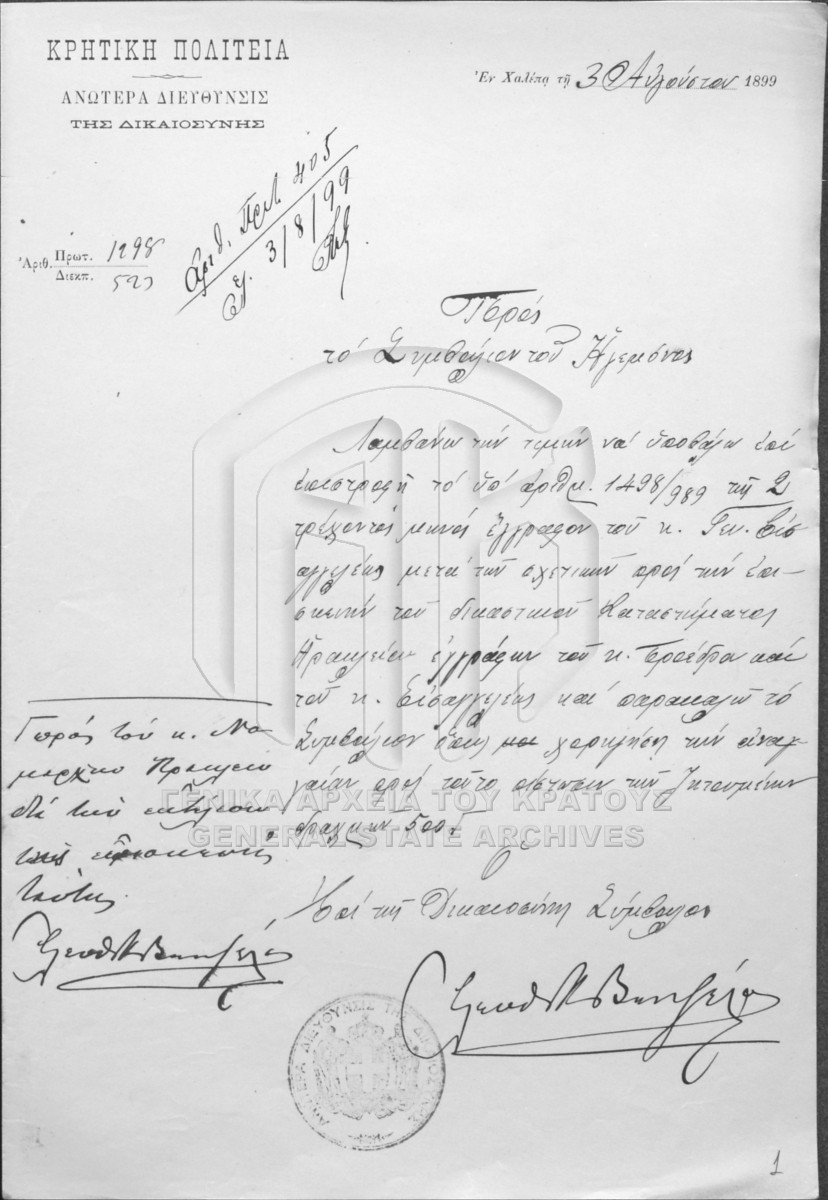 ΚΡΗΤΙΚΗ ΠΟΛΙΤΕΙΑ
ΑΝΩΤΕΡΑ ΔΙΕΥΘΥΝΣΙΣ
ΤΗΣ ΔΙΚΑΙΟΣΥΝΗΣ
Ἐν Χαλέπᾳ τῇ 3 Αὐγούστου 1899
Ἀριθ. Πρωτ. 1298
Διεκπ. 523
Ἀριθ. Πρωτ. 405
3/8/99
Πρός
τὸ Συμβούλιον τοῦ Ἡγεμόνος
Λαμβάνω τὴν τιμὴν νὰ ὑποβάλω ἐπὶ
ἐπιστροφῇ τὸ ὑπ' ἀριθμ. 1498/989 τῆς 2
τρέχοντος μηνὸς ἔγγραφον τοῦ κ. Γεν. Εἰσ
αγγελέως μετὰ τῶν σχετικῶν πρὸς τὴν ἐπι-
σκευὴν τοῦ δικαστικοῦ Καταστήματος
Ἡρακλείου ἐγγράφων τοῦ κ. Προέδρου καὶ
τοῦ κ. Εἰσαγγελέως καὶ παρακαλῶ τὸ
Συμβούλιον ὅπως χορηγήσῃ τὴν ἀναγ
καίαν πρὸς τοῦτο πίστωσιν τῶν ζητουμένων
δραχμῶν 500
Ὁ
ἐπὶ τῆς Δικαιοσύνης Σύμβουλος
Ἐλευθ Κ Βενιζέλος
Πρὸς τὸν κ. Νο
μάρχην Ἡρακλείου
διὰ τὴν ἐκτέλεσιν
τῆς ἐπισκευῆς
ταύτης.
Ἐλευθ Κ Βενιζέλος
ΑΝΩΤΕΡΑ ΔΙΕΥΘΥΝΣΙΣ ΤΗΣ ΔΙΚΑΙΟΣΥΝΗΣ
ΓΕΝΙΚΑ ΑΡΧΕΙΑ ΤΟΥ ΚΡΑΤΟΥΣ
GENERAL STATE ARCHIVES
1